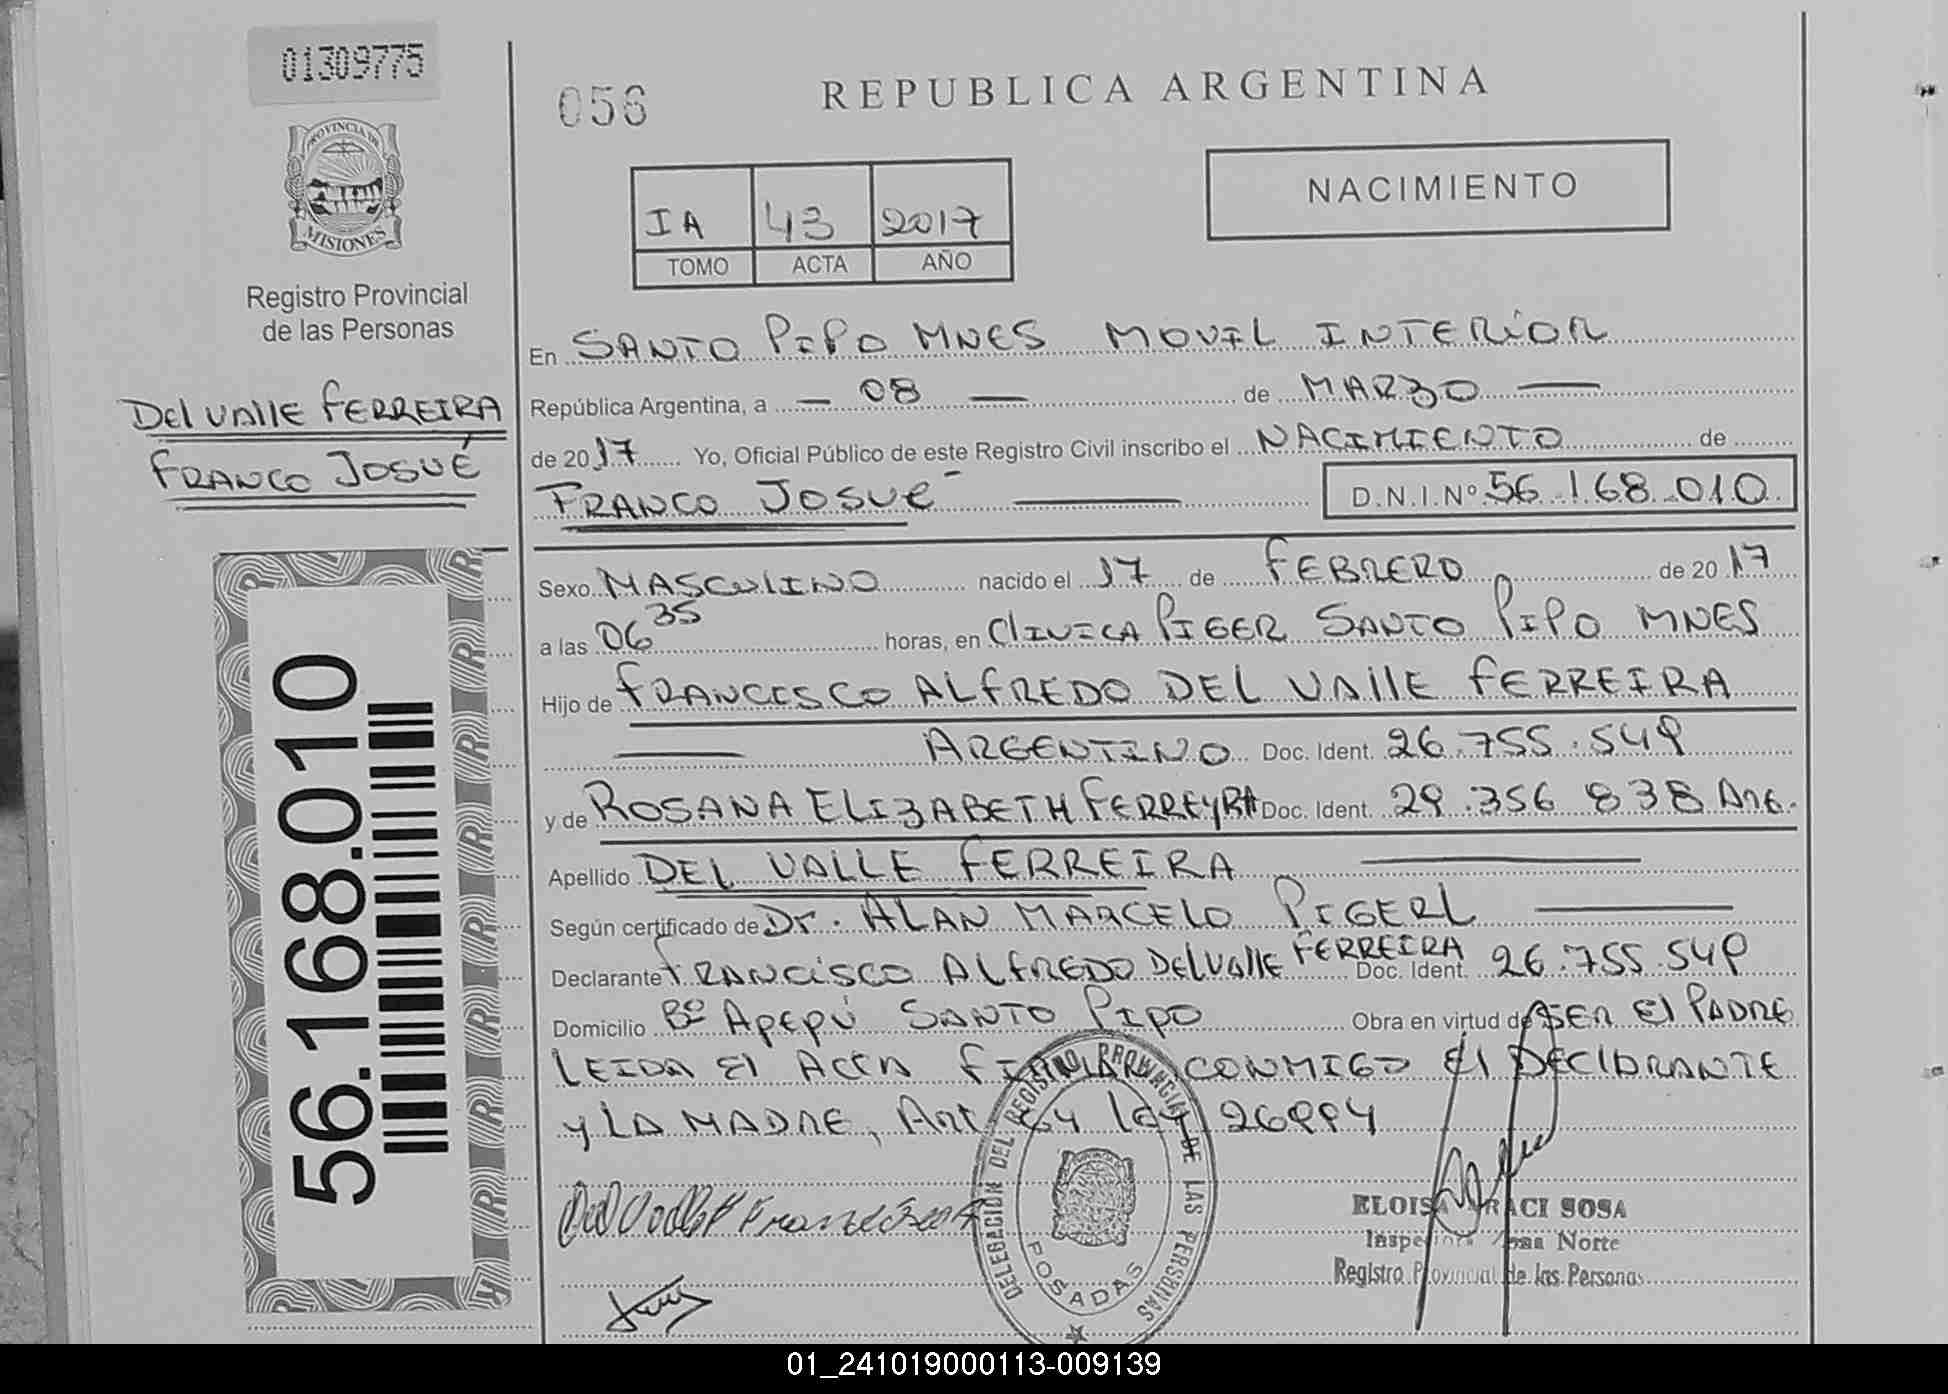 01309775
PROVINCIA DE
MISIONES
Registro Provincial
de las Personas
Del Valle FERREIRA
FRANCO JOSUÉ
56.168.010
056
REPUBLICA ARGENTINA
NACIMIENTO
IA 43 2017
TOMO ACTA AÑO
En SANTO PIPO MNES MOVIL INTERIOR
República Argentina, a — 08 — de MARZO —
de 2017 Yo, Oficial Público de este Registro Civil inscribo el NACIMIENTO de
FRANCO JOSUÉ — D.N.I.Nº 56.168.010
Sexo MASCULINO nacido el 17 de FEBRERO de 2017
a las 06 35 horas, en CLINICA PIGER SANTO PIPO MNES
Hijo de FRANCESCO ALFREDO DEL VAllE FERREIRA
— ARGENTINO Doc. Ident. 26.755.549
y de ROSANA ELIZABETH FERREYRA Doc. Ident. 29.356 838 ARG.
Apellido DEL VALLE FERREIRA —
Según certificado de Dr. ALAN MARCELO PIGERL —
Declarante FRANCISCO ALFREDO DEL VAllE FERREIRA Doc. Ident. 26.755.549
Domicilio Bº APEPÚ SANTO PIPO Obra en virtud de SER El PADRE
LEIDA El ACTA FIRMAN CONMIGO El DECLARANTE
y LA MADRE, Art 64 ley 26994
DELEGACIÓN DEL REGISTRO PROVINCIAL DE LAS PERSONAS
POSADAS
ELOISA ARACI SOSA
Inspectora Norte
Registro Provincial de las Personas
01_241019000113-009139